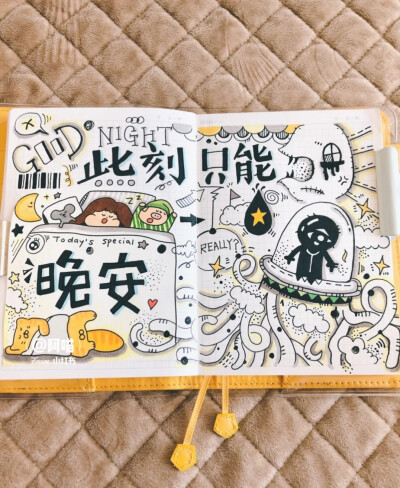 GOOD
NIGHT
此刻只能
Today's Special
REALLY?
晚安
@阿喵